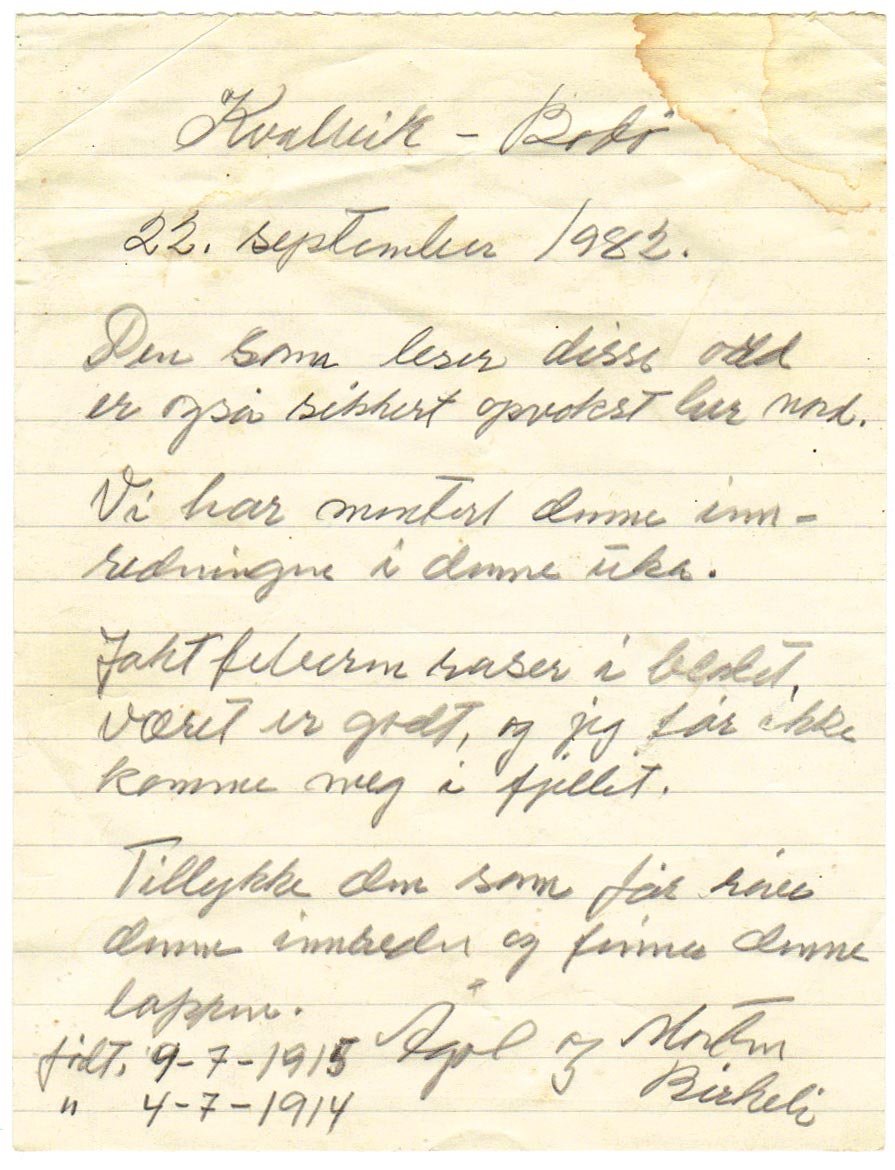 Kvalvik - Bodø
22. september 1982.
Den som leser disse ord
er også sikkert opvokst her nord.
Vi har montert denne inn-
redningne i denne uka.
Jaktfeberen raser i blodet,
været er godt, og jeg får ikke
komme meg i fjellet.
Tillykke den som får rive
denne innreden og finner denne
lappen.
født, 9-7-1915 Ågot og Morten
" 4-7-1914 Birkeli